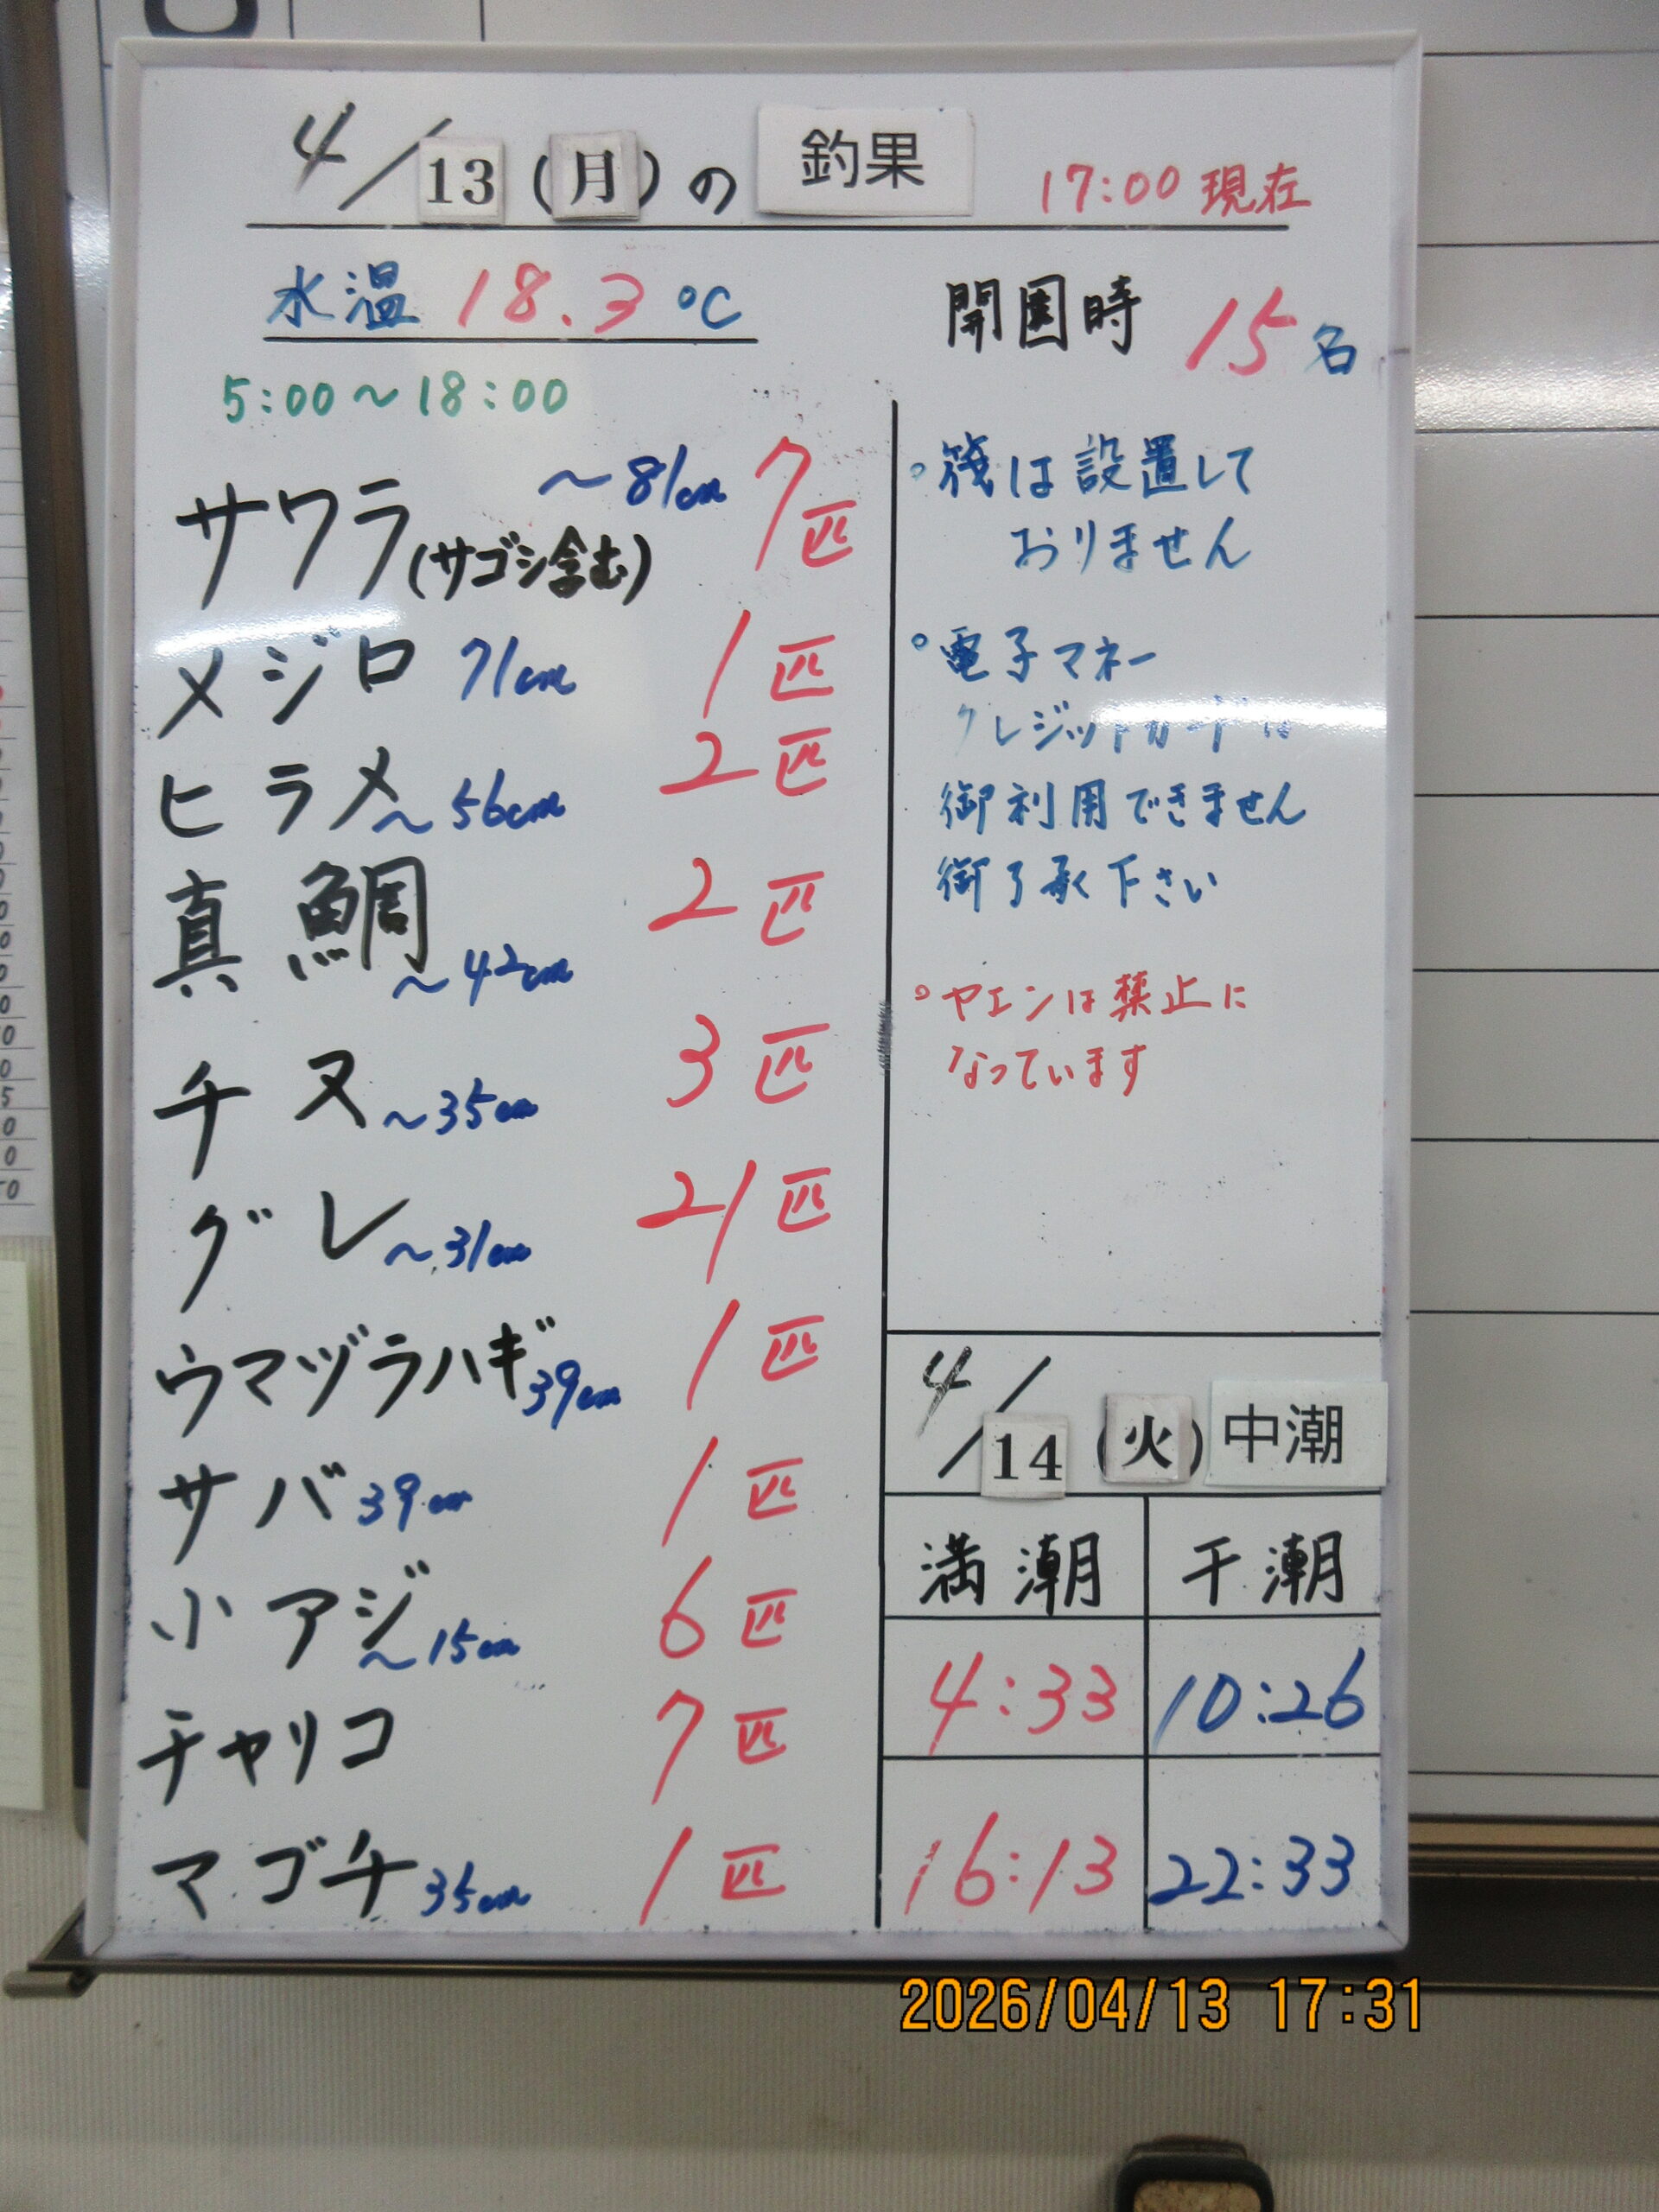 4/13(月)の 釣果 17:00 現在
水温 18.3 ℃
開園時 15名
5:00～18:00
サワラ(サゴシ含む) ～81cm 7匹
メジロ 71cm 1匹
ヒラメ ～56cm 2匹
真鯛 ～42cm 2匹
チヌ ～35cm 3匹
グレ ～31cm 21匹
ウマヅラハギ 39cm 1匹
サバ 39cm 1匹
小アジ ～15cm 6匹
チャリコ 7匹
マゴチ 35cm 1匹
。筏は設置して
おりません
。電子マネー
クレジットカードは
御利用できません
御了承下さい
。ヤエンは禁止に
なっています
4/14(火) 中潮
満潮 干潮
4:33 10:26
16:13 22:33
2026/04/13 17:31